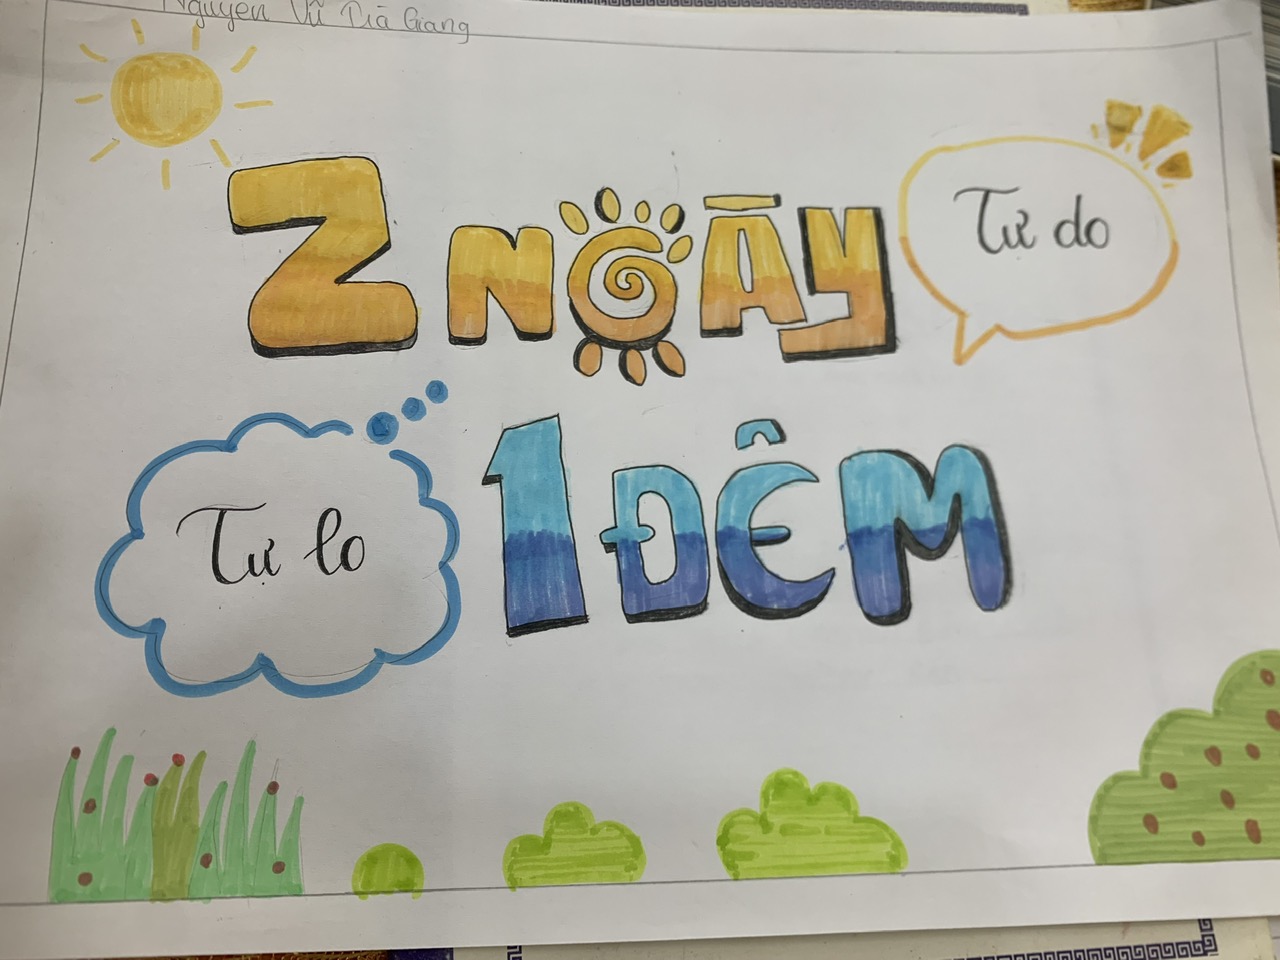 Nguyen Vũ Trà Giang
2 NGÀY
Tự do
1 ĐÊM
Tự lo